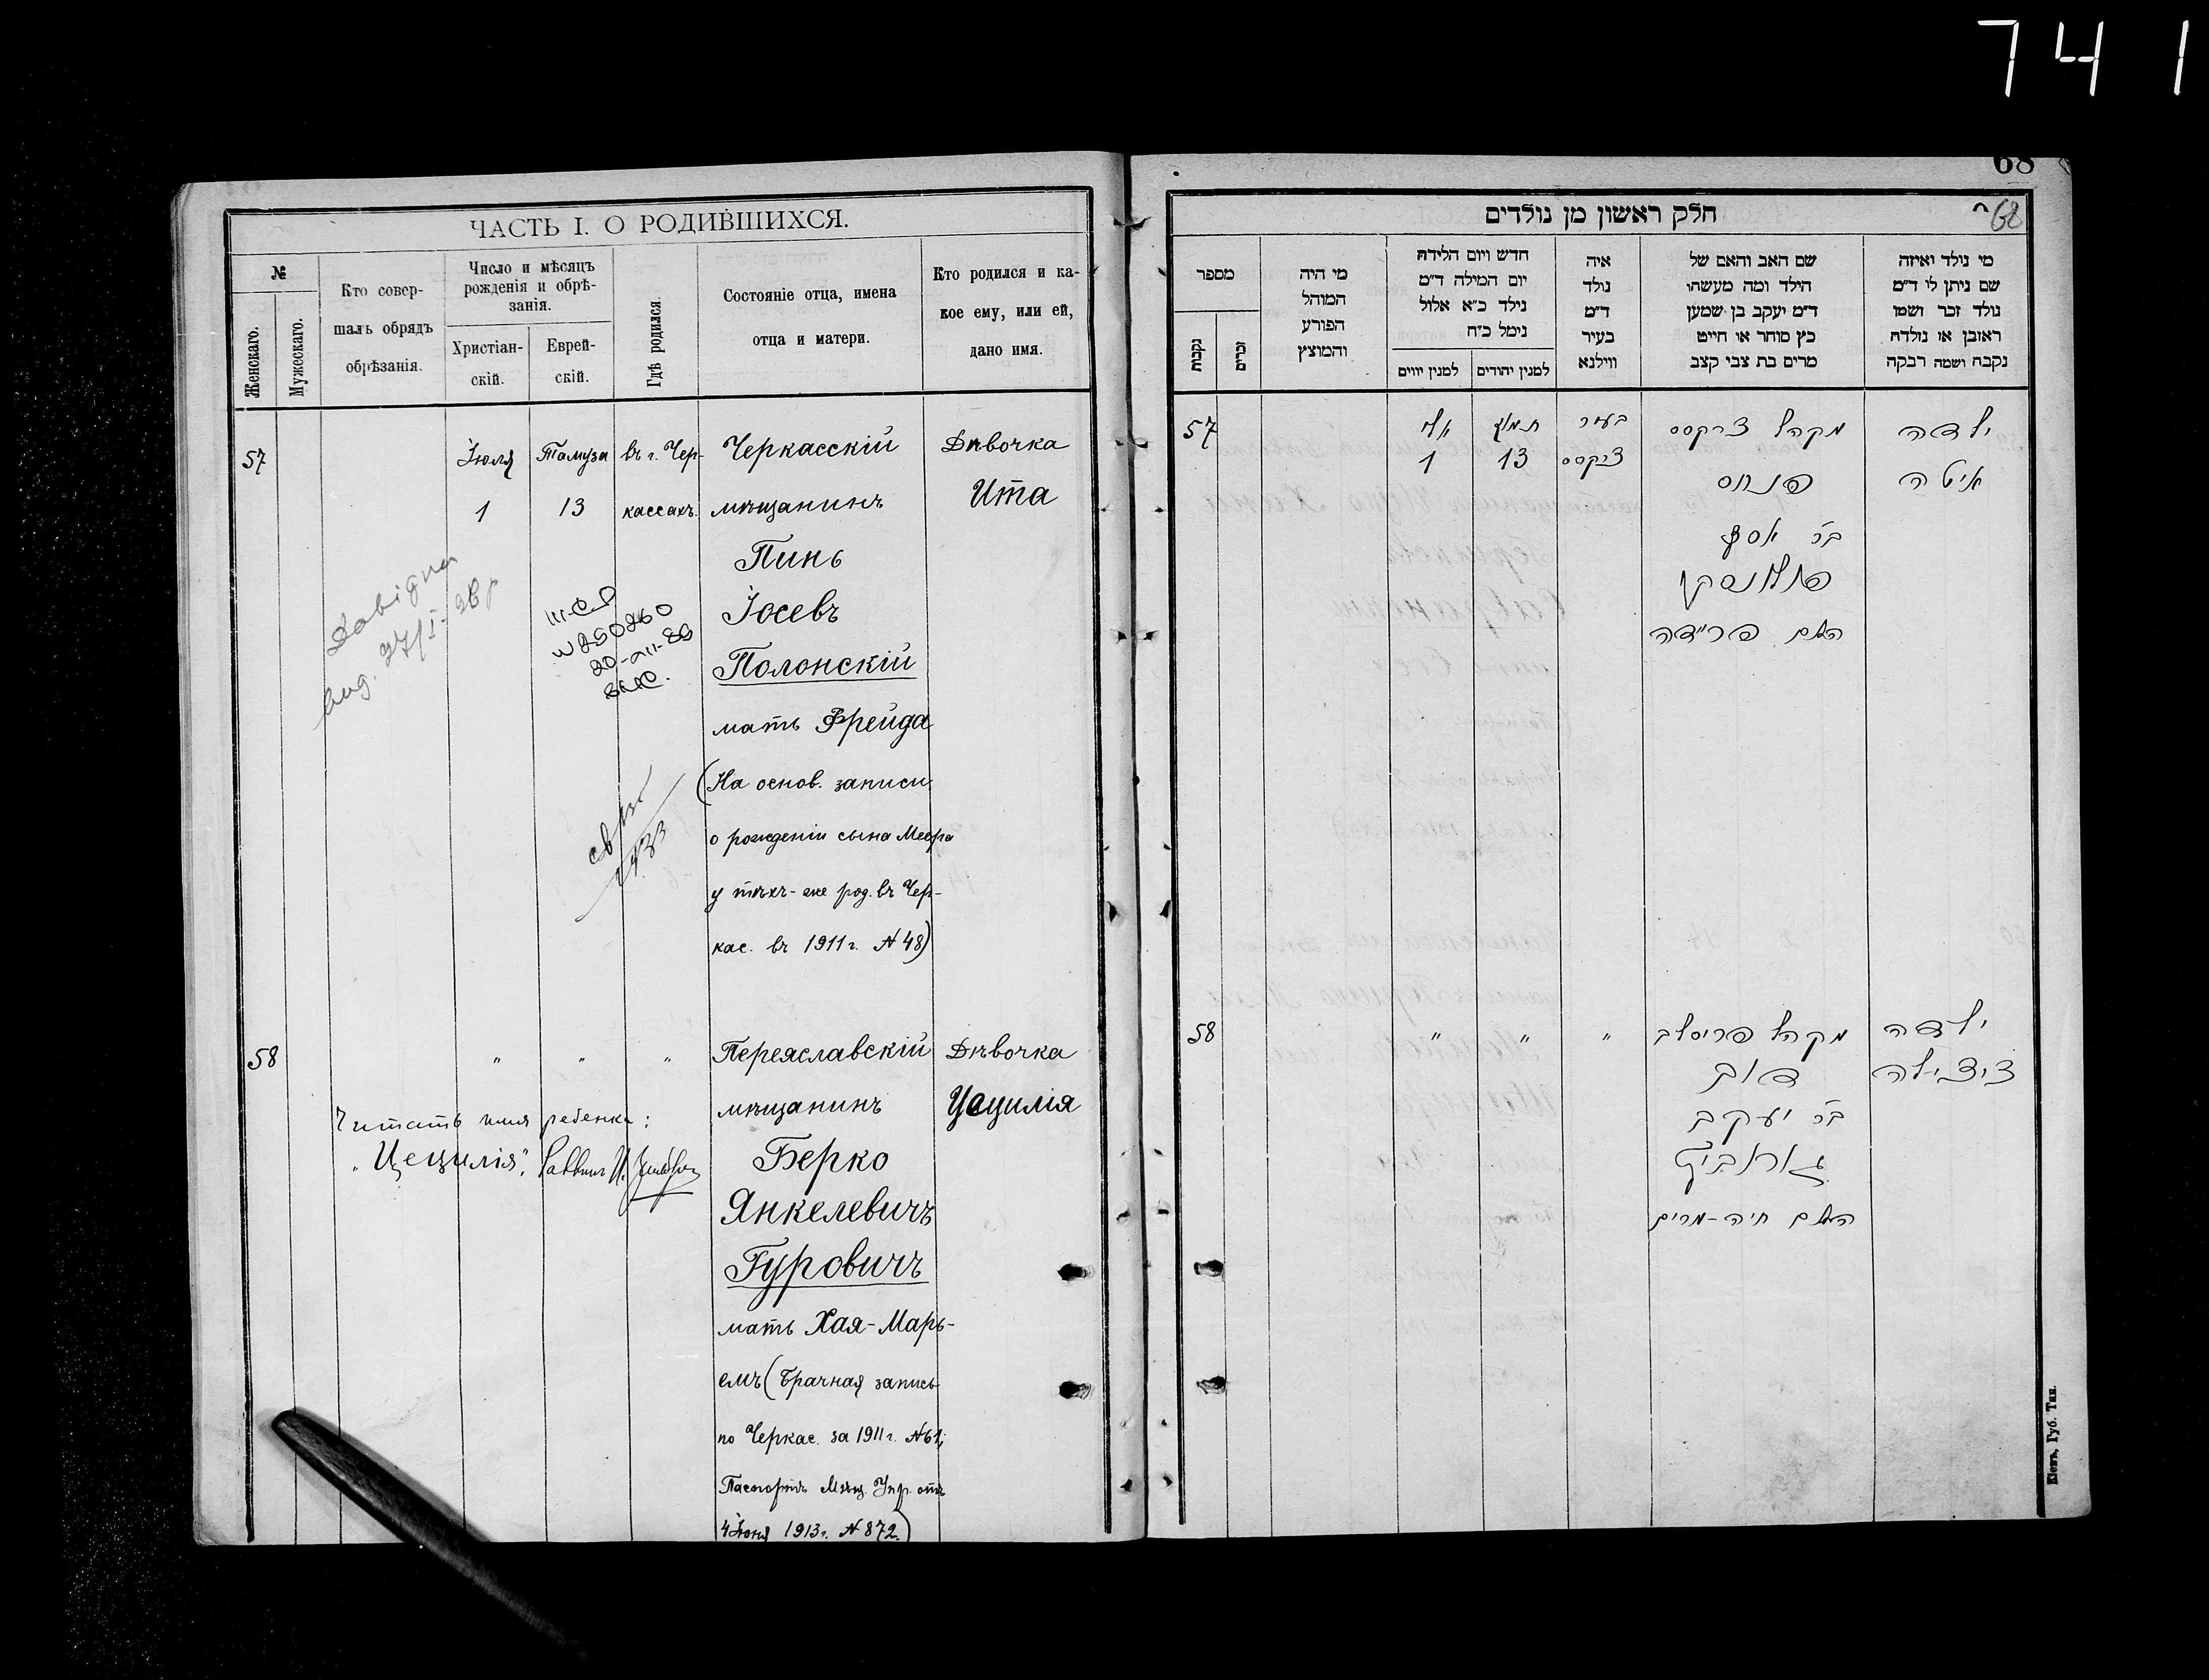 741
ЧАСТЬ I. О РОДИВШИХСЯ.
№
Женскаго.
Мужескаго.
Кто совер-
шалъ обрядъ
обрѣзанія.
Число и мѣсяцъ
рожденія и обрѣ-
занія.
Христіан-
скій.
Еврей-
скій.
Гдѣ родился.
Состояніе отца, имена
отца и матери.
Кто родился и ка-
кое ему, или ей,
дано имя.
57
Іюля
1
Тамуза
13
въ г. Чер-
кассахъ.
Черкасскій
мѣщанинъ
Пинь
Іосевъ
Полонскій
мать Фрейда
(На основ. записи
о рожденіи сына Меера
у тѣхъ-же род. въ Чер-
кас. въ 1911 г. № 48)
Дѣвочка
Ита
58
" " "
Переяславскій
мѣщанинъ
Берко
Янкелевичъ
Гуровичъ
мать Хая-Марь-
емъ (Брачная запись
по Черкас. за 1911 г. №61;
Паспортъ Мѣщ. Упр. отъ
4 Іюня 1913 г. № 872)
Дѣвочка
Цецилія
Читать имя ребенка:
"Цецилія". Раввинъ
68
68
חלק ראשון מן נולדים
מספר
נקבות
זכרים
מי היה
המוהל
הפורע
והמוצץ
חדש ויום הלידה
יום המילה ד״מ
נילד כ״א אלול
נימל כ״ח
למנין יווים
למנין יהודים
איה
נולד
ד״מ
בעיר
ווילנא
שם האב והאם של
הילד ומה מעשהו
ד״מ יעקב בן שמען
כץ סוחר או חייט
מרים בת צבי קצב
מי נולד ואיזה
שם ניתן לו ד״מ
נולד זכר ושמו
ראובן או נולדה
נקבה ושמה רבקה
57
1
תמוז
13
בעיר
צרקסס
מקהל צרקסס
פנחס
האם פריידה
ילדה
איטה
58
" " "
מקהל פריסלב
דוב
בר יעקב
גוראביץ
האם חיה-מרים
ילדה
ציציליה
Кіевъ, Губ. Тип.